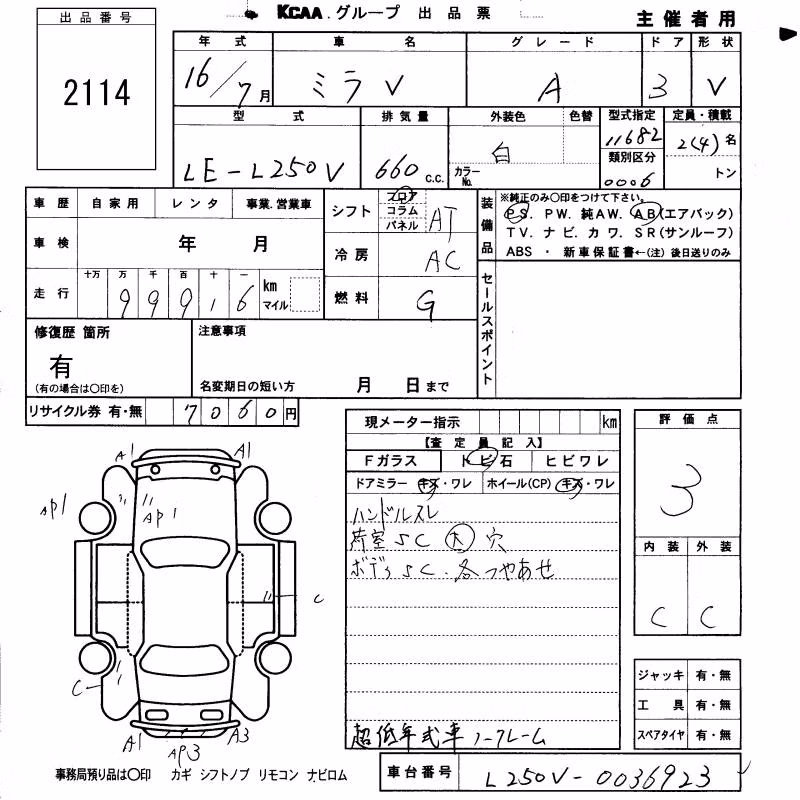 KCAA.グループ 出品票
主催者用
出品番号
2114
年式 車名 グレード ドア 形状
16/7月 ミラV A 3 V
型式 排気量 外装色 色替 型式指定 定員・積載
LE-L250V 660 c.c. 白 カラーNo. 11682 2(4)名
類別区分
0006 トン
車歴 自家用 レンタ 事業.営業車
車検 年 月
走行 十万 万 千 百 十 一 km
99916 マイル
シフト フロア コラム パネル AT
冷房 AC
燃料 G
装備品
※純正のみ〇印をつけて下さい。
PS. PW. 純AW. AB(エアバック)
TV. ナビ. カワ. SR(サンルーフ)
ABS ・ 新車保証書←(注) 後日送りのみ
セールスポイント
修復歴 箇所
有
(有の場合は〇印を)
注意事項
名変期日の短い方 月 日まで
リサイクル券 有・無 7060円
現メーター指示 km
【査定員記入】
Fガラス トビ石 ヒビワレ
ドアミラー キズ・ワレ ホイール(CP) キズ・ワレ
ハンドルスレ
荷室SC 大 穴
ボデーSC. 各つやあせ
超低年式車ノークレーム
評価点
3
内装 外装
C C
ジャッキ 有・無
工具 有・無
スペアタイヤ 有・無
A1 A1
AP1
AP1
C
C
A1 AP3 A3
事務局預り品は〇印 カギ シフトノブ リモコン ナビロム
車台番号 L250V-0036923